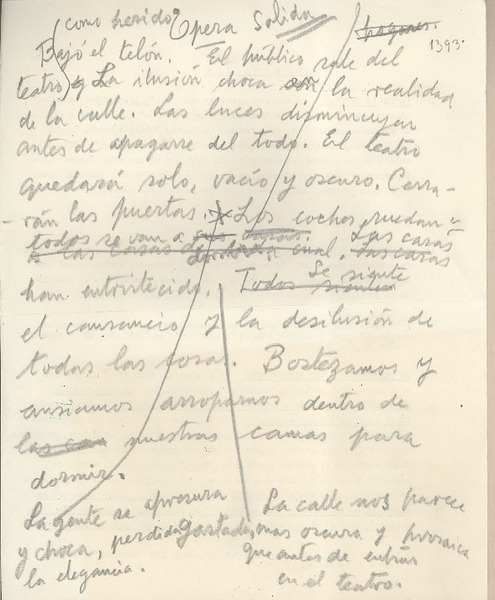 Opera Solida
(como herido) hogares.
Bajó el telón. El público sale del 1393.
teatro y La ilusión choca con la realidad
de la calle. Las luces disminuyen
antes de apagarse del todo. El teatro
quedará solo, vacío y oscuro. Cerra-
-rán las puertas. Los coches ruedan y
todos se van a sus
a las casas de cada cual. Las caras
han entristecido. Todos Se siente
el cansancio y la desilusión de
todas las cosas. Bostezamos y
ansiamos arroparnos dentro de
las nuestras camas para
dormir.
La gente se apresura
y choca, perdida, gastada,
la elegancia.
La calle nos parece
mas oscura y prosaica
que antes de entrar
en el teatro.